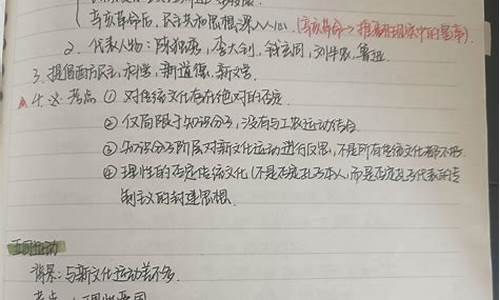 辛亥革命后，民主共和思想深入人心（辛亥革命→推
2. 代表人物：陈独秀，李大钊，钱玄同，刘半农，鲁迅
3. 提倡西方民主，科学，新道德，新文学
考点 ① 对传统文化存在绝对的否定
② 仅局限于知识分子，没有与工农运动结合
③ 知识分子阶层对新文化运动进行反思，不是所有传统文化都不好
④ 理性的否定传统文化（不是否定孔子本人，而是否定孔子代表的专
制主义的封建思想
五四运动
背景：与新文化运动差不多
考点